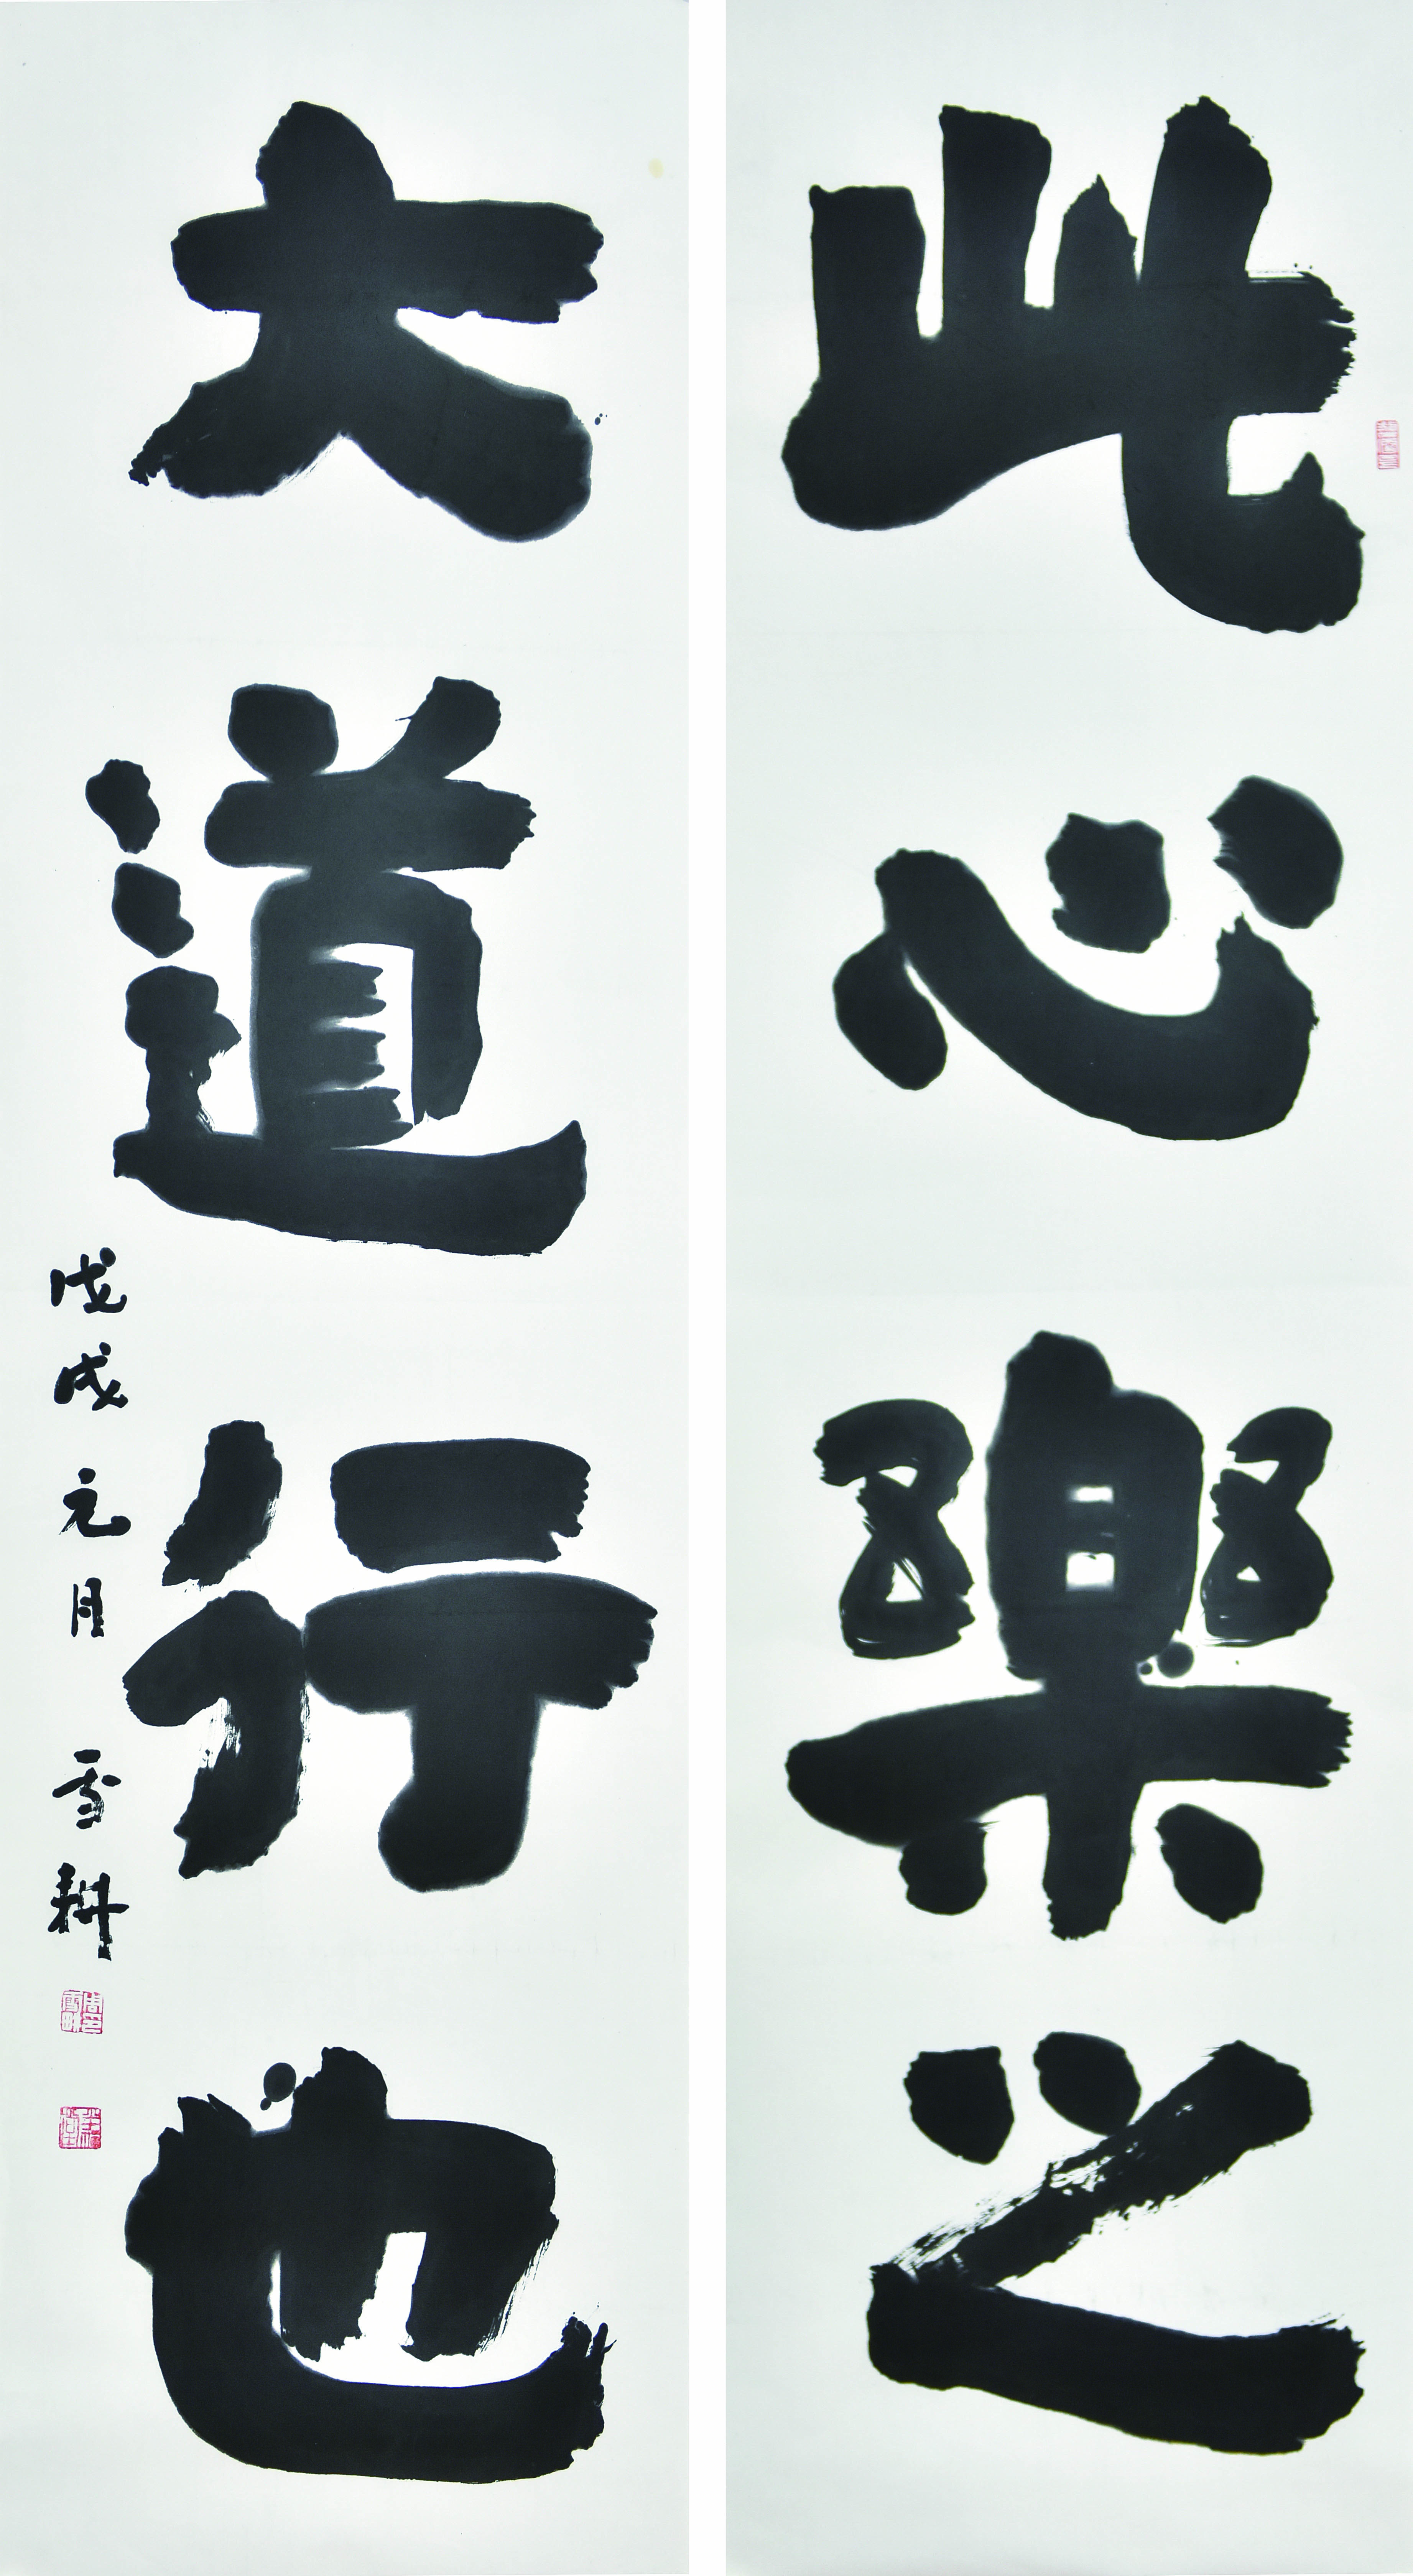 此心樂之
大道行也
戊戌元月 雪耕